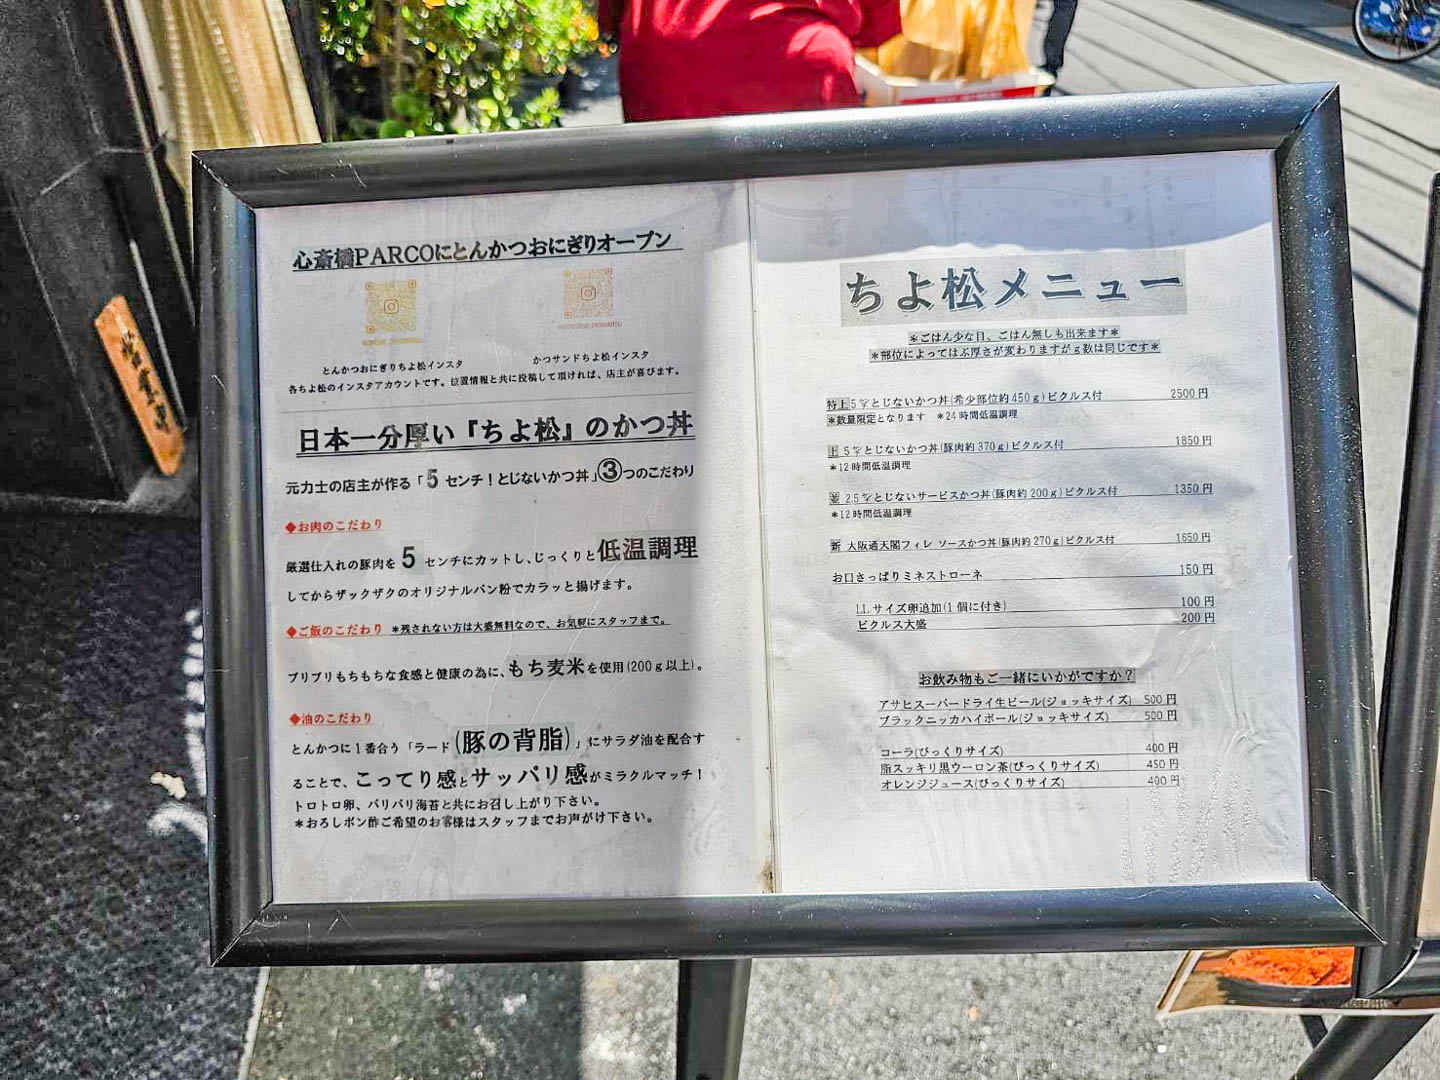 心斎橋PARCOにとんかつおにぎりオープン
とんかつおにぎりちよ松インスタ
かつサンドちよ松インスタ
各ちよ松のインスタアカウントです。位置情報と共に投稿して頂ければ、店主が喜びます。
日本一分厚い『ちよ松』のかつ丼
元力士の店主が作る「5センチ！とじないかつ丼」③つのこだわり
◆お肉のこだわり
厳選仕入れの豚肉を 5 センチにカットし、じっくりと低温調理
してからザックザクのオリジナルパン粉でカラッと揚げます。
◆ご飯のこだわり ＊残されない方は大盛無料なので、お気軽にスタッフまで。
プリプリもちもちな食感と健康の為に、もち麦米を使用(200ｇ以上)。
◆油のこだわり
とんかつに１番合う「ラード(豚の背脂)」にサラダ油を配合す
ることで、こってり感とサッパリ感がミラクルマッチ！
トロトロ卵、パリパリ海苔と共にお召し上がり下さい。
＊おろしポン酢ご希望のお客様はスタッフまでお声がけ下さい。
ちよ松メニュー
＊ごはん少な目、ごはん無しも出来ます＊
＊部位によってはぶ厚さが変わりますがｇ数は同じです＊
特上5㌢とじないかつ丼(希少部位約450ｇ)ピクルス付 2500円
＊数量限定となります ＊24時間低温調理
上 5㌢とじないかつ丼(豚肉約370ｇ)ピクルス付 1850円
＊12時間低温調理
並 2.5㌢とじないサービスかつ丼(豚肉約200ｇ)ピクルス付 1350円
＊12時間低温調理
新 大阪通天閣フィレ ソースかつ丼(豚肉約270ｇ)ピクルス付 1650円
お口さっぱりミネストローネ 150円
LLサイズ卵追加(1個に付き) 100円
ピクルス大盛 200円
お飲み物もご一緒にいかがですか？
アサヒスーパードライ生ビール(ジョッキサイズ) 500円
ブラックニッカハイボール(ジョッキサイズ) 500円
コーラ(びっくりサイズ) 400円
脂スッキリ黒ウーロン茶(びっくりサイズ) 450円
オレンジジュース(びっくりサイズ) 400円